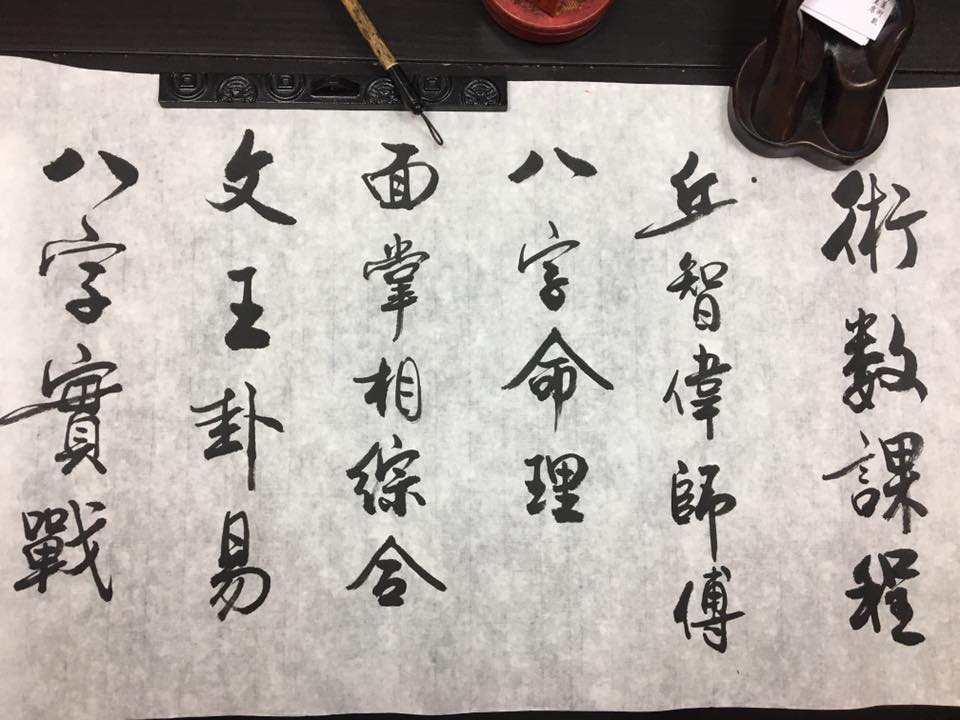 術數課程
丘智偉師傅
八字命理
面掌相綜合
文王卦易
八字實戰